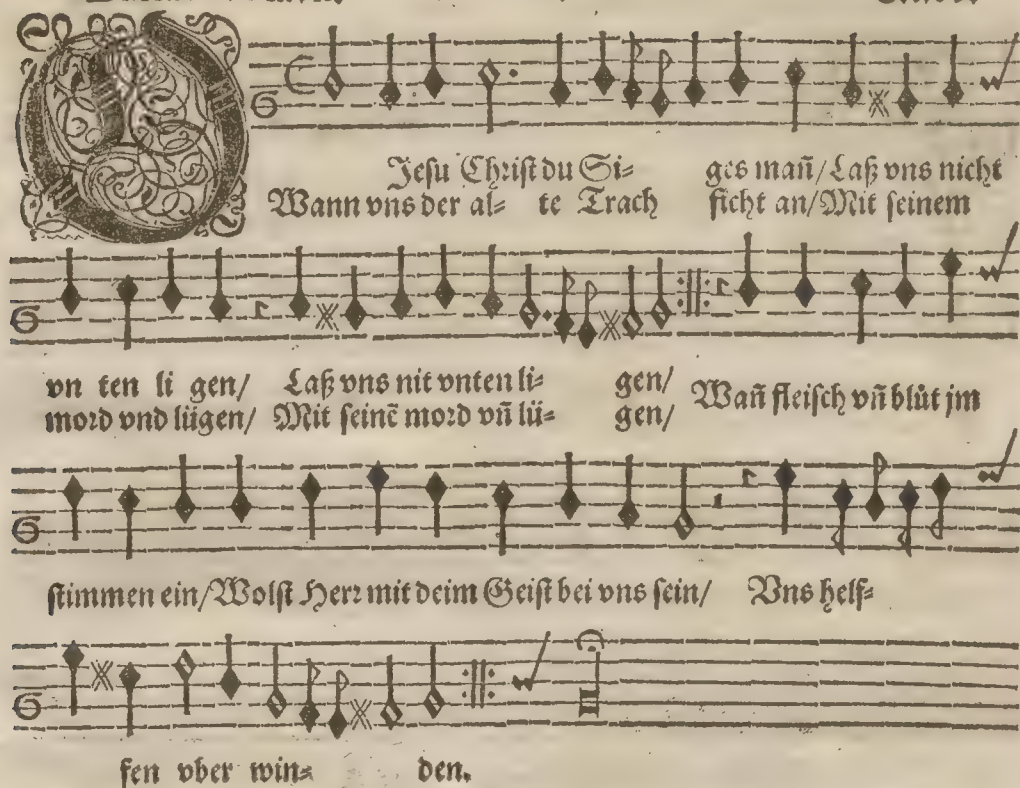 O
Jesu Christ du Si= ges mañ/ Laß vns nicht
Wann vns der al= te Trach ficht an/ Mit seinem
vn ten li gen/ Laß vns nit vnten li= gen/
mord vnd lügen/ Mit seinē mord vñ lü= gen/ Wañ fleisch vñ blůt jm
stimmen ein/ Wolst Herr mit deim Geist bei vns sein/ Vns helf=
fen vber win= den.